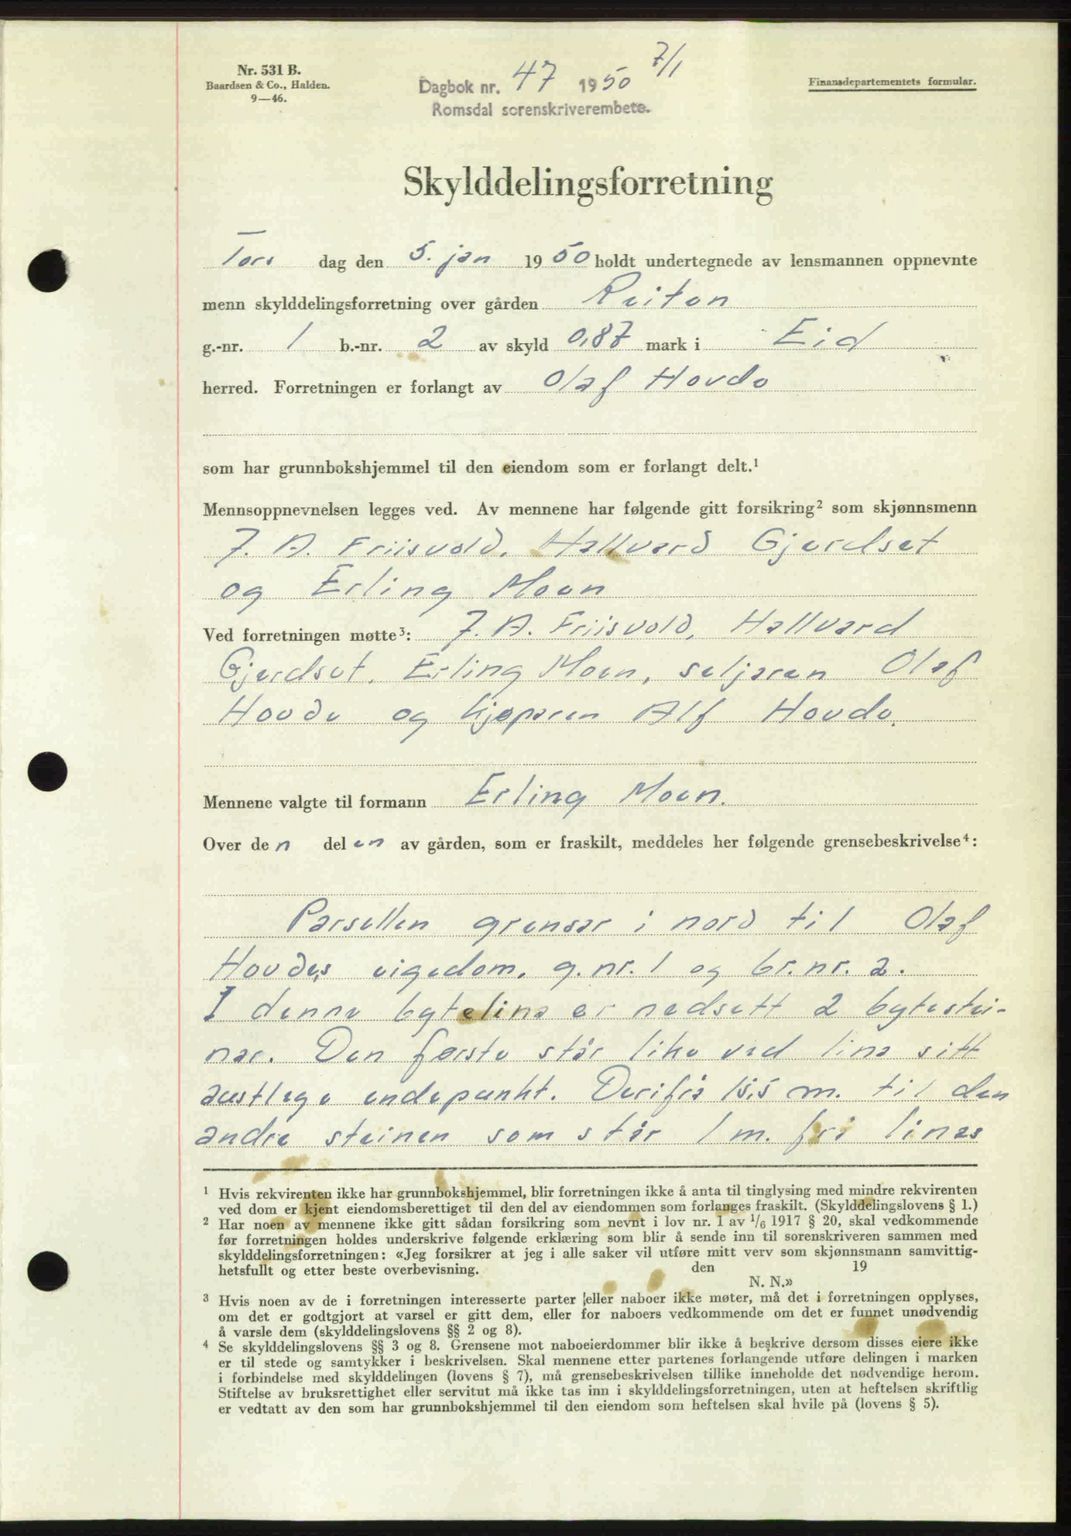 Nr. 531 B.
Baardsen & Co., Halden.
9—46.
Dagbok nr. 47 1950 7/1
Romsdal sorenskriverembete.
Finansdepartementets formular.
Skylddelingsforretning
Tors dag den 5. jan 1950 holdt undertegnede av lensmannen oppnevnte
menn skylddelingsforretning over gården Reiten
g.-nr. 1 b.-nr. 2 av skyld 0,87 mark i Eid
herred. Forretningen er forlangt av Olaf Hovde
som har grunnbokshjemmel til den eiendom som er forlangt delt.¹
Mennsoppnevnelsen legges ved. Av mennene har følgende gitt forsikring² som skjønnsmenn
J. A. Friisvold, Hallvard Gjerdset
og Erling Moen
Ved forretningen møtte³: J. A. Friisvold, Hallvard
Gjerdset, Erling Moen, seljaren Olaf
Hovde og kjøparen Alf Hovde.
Mennene valgte til formann Erling Moen.
Over den delen av gården, som er fraskilt, meddeles her følgende grensebeskrivelse⁴:
Parsellen grensar i nord til Olaf
Hovdes eigedom, g.nr. 1 og br.nr. 2.
I denne bytelina er nedsett 2 bytestei-
nar. Den første står like ved lina sitt
austlege endepunkt. Derifrå 15,5 m. til den
andre steinen som står 1 m. frå linas
¹ Hvis rekvirenten ikke har grunnbokshjemmel, blir forretningen ikke å anta til tinglysing med mindre rekvirenten
ved dom er kjent eiendomsberettiget til den del av eiendommen som forlanges fraskilt. (Skylddelingslovens § 1.)
² Har noen av mennene ikke gitt sådan forsikring som nevnt i lov nr. 1 av 1/6 1917 § 20, skal vedkommende
før forretningen holdes underskrive følgende erklæring som blir å sende inn til sorenskriveren sammen med
skylddelingsforretningen: «Jeg forsikrer at jeg i alle saker vil utføre mitt verv som skjønnsmann samvittig-
hetsfullt og etter beste overbevisning. den 19
N. N.»
³ Hvis noen av de i forretningen interesserte parter eller naboer ikke møter, må det i forretningen opplyses,
om det er godtgjort at varsel er gitt dem, eller for naboers vedkommende om det er funnet unødvendig
å varsle dem (skylddelingslovens §§ 2 og 8).
⁴ Se skylddelingslovens §§ 3 og 8. Grensene mot naboeierdommer blir ikke å beskrive dersom disses eiere ikke
er til stede og samtykker i beskrivelsen. Skal mennene etter partenes forlangende utføre delingen i marken
i forbindelse med skylddelingen (lovens § 7), må grensebeskrivelsen tillike inneholde det nødvendige herom.
Stiftelse av bruksrettighet eller servitut må ikke tas inn i skylddelingsforretningen, uten at heftelsen skriftlig
er vedtatt av den som har grunnbokshjemmel til den eiendom som heftelsen skal hvile på (lovens § 5).